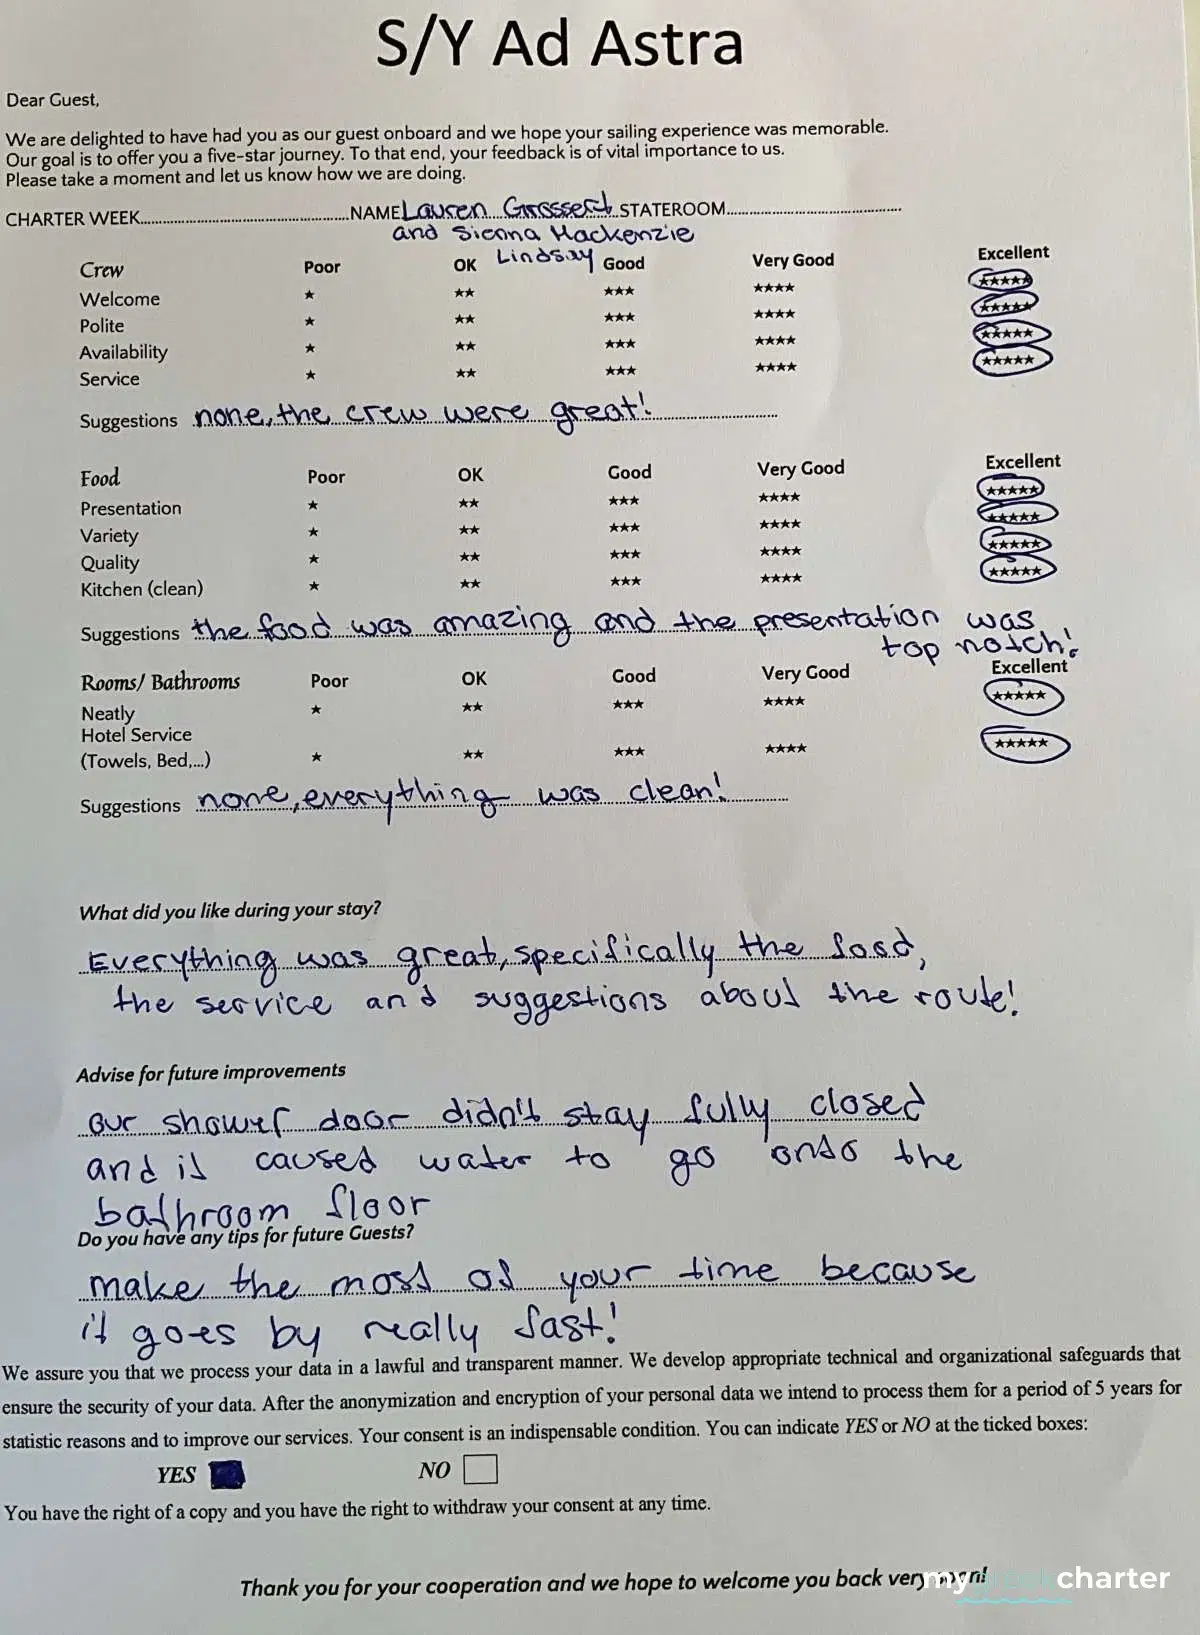 S/Y Ad Astra
Dear Guest,
We are delighted to have had you as our guest onboard and we hope your sailing experience was memorable.
Our goal is to offer you a five-star journey. To that end, your feedback is of vital importance to us.
Please take a moment and let us know how we are doing.
CHARTER WEEK............NAME Lauren Grossert STATEROOM............
and Sienna Mackenzie
Lindsay
Crew Poor OK Good Very Good Excellent
Welcome ★ ★★ ★★★ ★★★★ ★★★★★
Polite ★ ★★ ★★★ ★★★★ ★★★★★
Availability ★ ★★ ★★★ ★★★★ ★★★★★
Service ★ ★★ ★★★ ★★★★ ★★★★★
Suggestions none, the crew were great!
Food Poor OK Good Very Good Excellent
Presentation ★ ★★ ★★★ ★★★★ ★★★★★
Variety ★ ★★ ★★★ ★★★★ ★★★★★
Quality ★ ★★ ★★★ ★★★★ ★★★★★
Kitchen (clean) ★ ★★ ★★★ ★★★★ ★★★★★
Suggestions the food was amazing and the presentation was
top notch!
Rooms/ Bathrooms Poor OK Good Very Good Excellent
Neatly ★ ★★ ★★★ ★★★★ ★★★★★
Hotel Service
(Towels, Bed,...) ★ ★★ ★★★ ★★★★ ★★★★★
Suggestions none, everything was clean!
What did you like during your stay?
Everything was great, specifically the food,
the service and suggestions about the route!
Advise for future improvements
our shower door didn't stay fully closed
and it caused water to go onto the
bathroom floor
Do you have any tips for future Guests?
make the most of your time because
it goes by really fast!
We assure you that we process your data in a lawful and transparent manner. We develop appropriate technical and organizational safeguards that
ensure the security of your data. After the anonymization and encryption of your personal data we intend to process them for a period of 5 years for
statistic reasons and to improve our services. Your consent is an indispensable condition. You can indicate YES or NO at the ticked boxes:
YES NO
You have the right of a copy and you have the right to withdraw your consent at any time.
Thank you for your cooperation and we hope to welcome you back very soon!
mygreekcharter